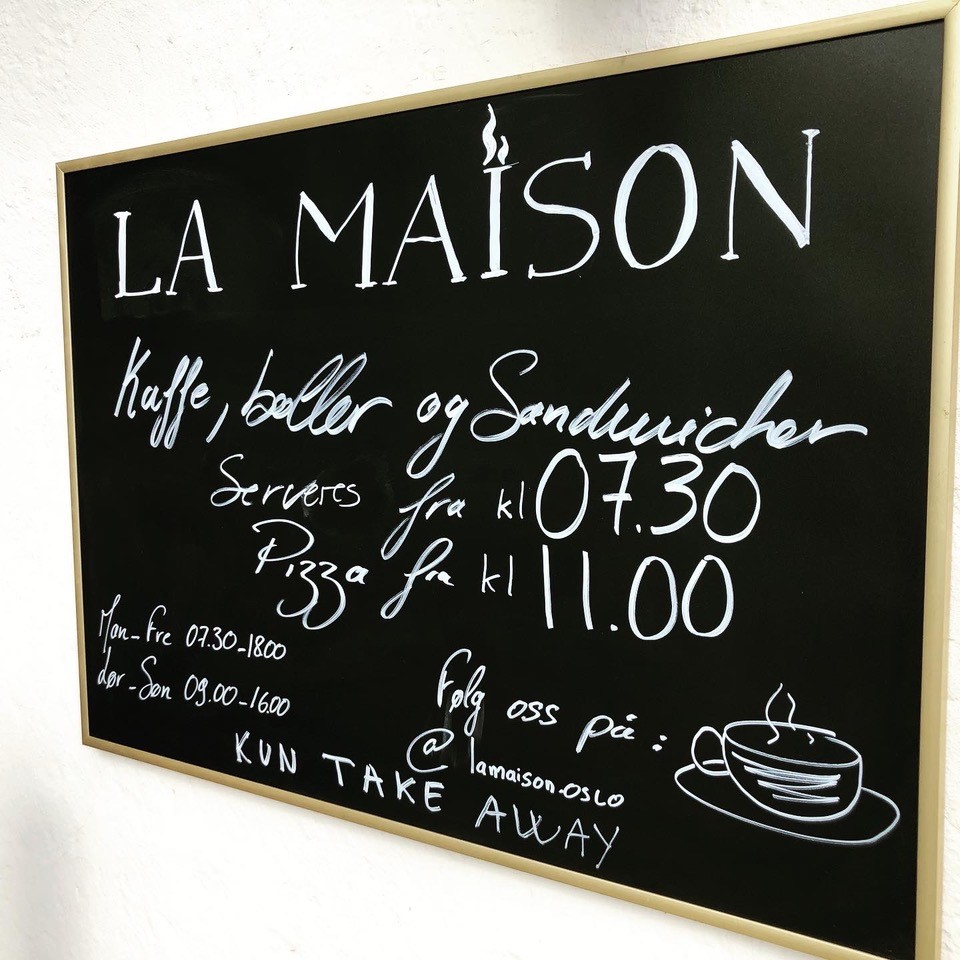 LA MAISON
Kaffe, boller og Sandwicher
Serveres fra kl 07.30
Pizza fra kl 11.00
Man-Fre 07.30-1800
Lør-Søn 09.00-16.00
Følg oss på:
@lamaison.oslo
KUN TAKE AWAY